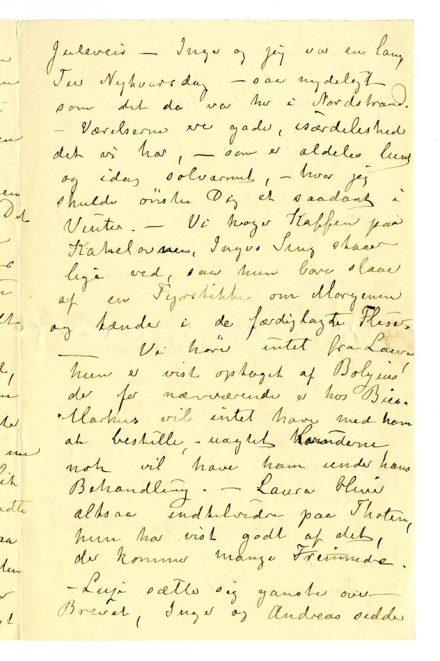 Juleveis — Inga og jeg var en lang
Tur Nyhaarsdag — saa nydeligt
som det da var her i Nordstrand.
— Værelserne ere gode, isærdeleshed
det vi har, — som er aldeles lunt
og idag solvarmt, — hvor jeg
skulde ønske Dig et saadant i
Vinter. — Vi koger Kaffen paa
Kakelovnen, Ingas Seng staar
lige ved, saa hun bare slaar
af en Fyrstikke om Morgenen
og tænder i de færdiglagte Fliser.
— Vi hører intet fra Laura
hun er vist optaget af
der for nærværende er hos
Markus vil intet have med ham
at bestille, — uagtet Kunderne
nok vil have ham under hans
Behandling. — Laura bliver
altsaa indtilvidre paa Thoten,
hun har vist godt af det,
der kommer mange Fremmede.
— sætte sig ganske over
Brevet, Inga og Andreas sidder